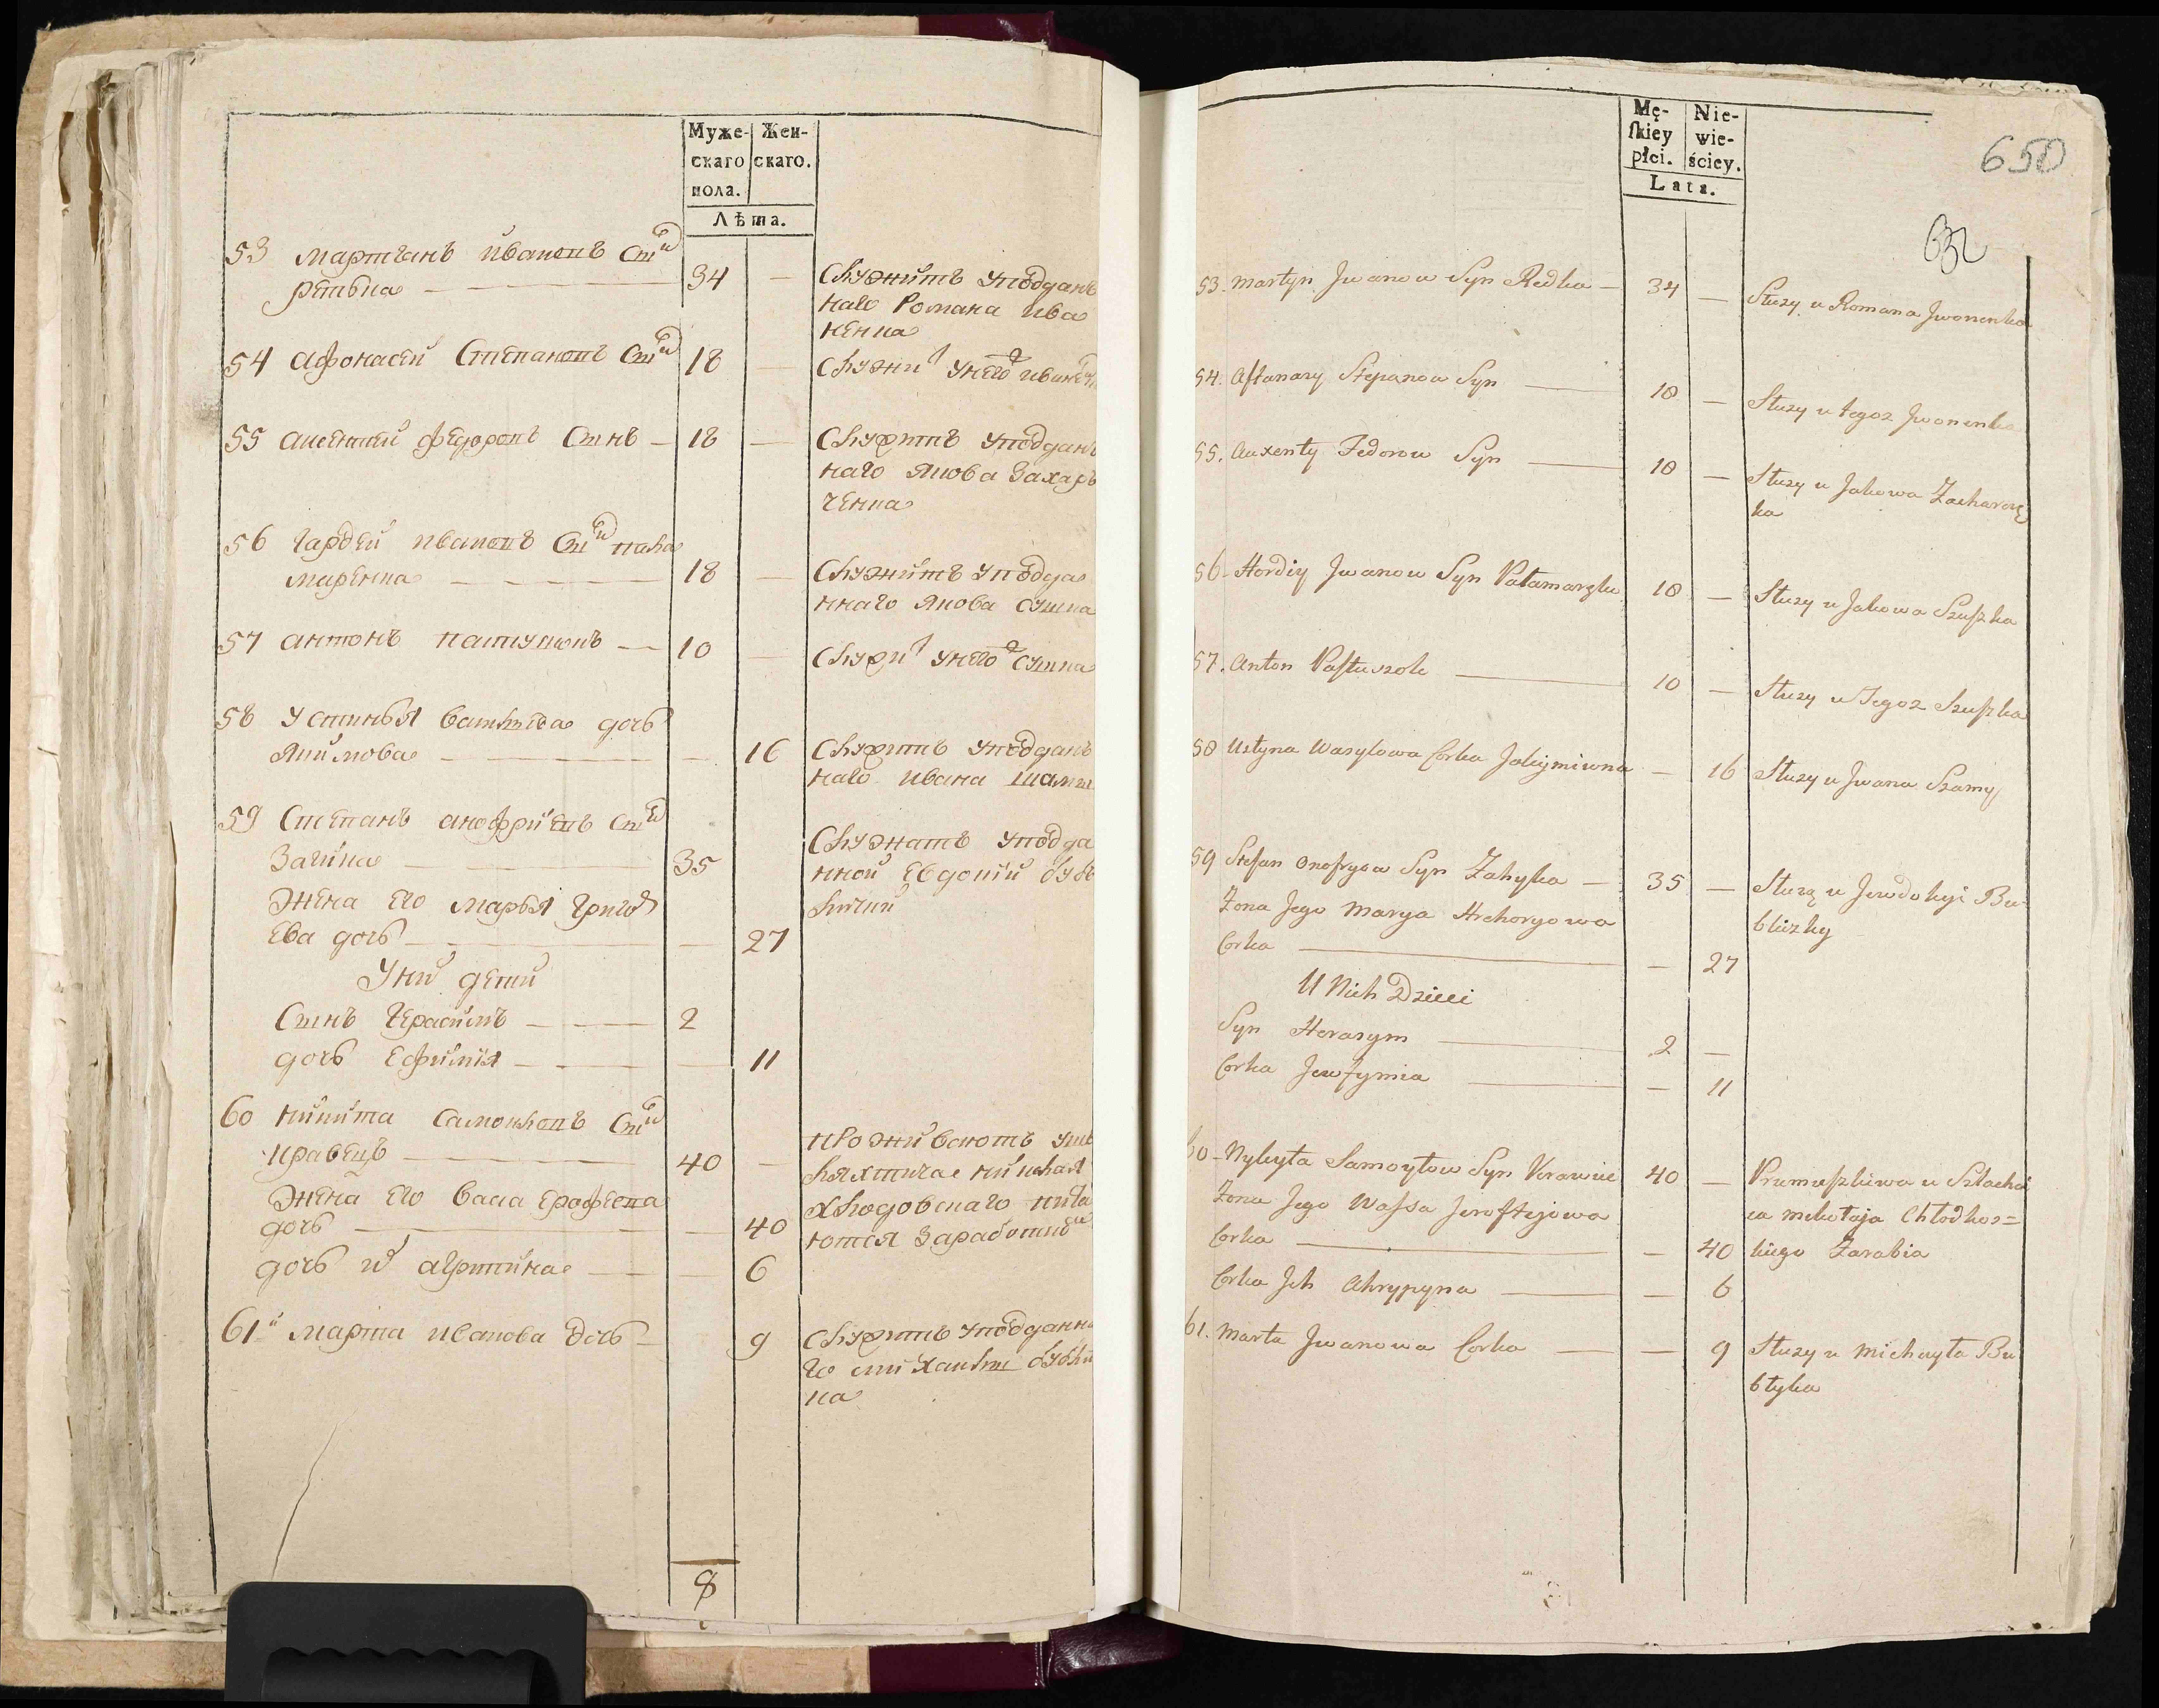 Муже-
скаго
пола.
Жен-
скаго.
Лѣта.
53 мартынъ ивановъ сынъ
рѣдька — 34 — Служитъ у поддан
наго Романа ива
ненка
54 афонасей Степановъ сынъ 18 — Служи у него ж
55 аксентей федоровъ Сынъ — 18 — Служитъ у поддан
наго якова Захар
ченка
56 гардей ивановъ сынъ пала
маренко — 18 — Служитъ у подда
ннаго якова сушка
57 антонъ пастушокъ — 10 — Служи у него ж сушка
58 устинья васильева дочь
якимова — — 16 Служитъ у поддан
наго ивана шамш
59 Степанъ анофриевъ сынъ
загика — 35 Служатъ у подда
нной Евдокіи бубъ
лички
Жена его марья григор
ева дочь — — 27
У них дети
Сынъ герасимъ — 2
дочь Ефимія — — 11
60 никита самойловъ сынъ
кравецъ — 40 — проживаютъ у ш
ляхтича николая
Жена его васа ерофеева
дочь — — 40 хлодовскаго пита
ются заработки
дочь их агрипина — — 6
61 марта иванова дочь — 9 Служитъ у подданна
го михаилы бубли
ка
8
Mę-
ſkiey
płci.
Nie-
wie-
ściey.
Lata.
650
632
53. Martyn Jwanow Syn Redka — 34 — Służy u Romana Jwonenka
54. Aftanazy Stepanow Syn — 18 — Służy u tegoz Jwonenka
55. Auxenty Fedorow Syn — 18 — Służy u Jakowa Zacharcz
ka
56. Hordiy Jwanow Syn Pałamarzku 18 — Służy u Jakowa Szuſzka
57. Anton Paſtuszok — 10 — Służy u Tegoz Szuſzka
58 Ustyna Wasylowa Corka Jakymiwna — 16 Służy u Jwana Szamsz
59 Stefan Onofryow Syn Zahyka — 35 — Służą u Jewdokyi Bu-
bliczky
Zona Jego Marya Hrehoryowa
Corka — — 27
U Nich Dzieci
Syn Herasym — 2 —
Corka Jewfymia — — 11
60 Nykyta Samoyłow Syn Krawiec 40 — Pramieſzkiwa u Szlachci
Zona Jego Waſsa Jeroftejowa
ca Mikołaja Chłodkos=
Corka — — 40 kiego Zarabia
Corka Jch Ahrypyna — — 6
61. Marta Jwanowa Corka — — 9 Służy u Michayła Bu
błyka